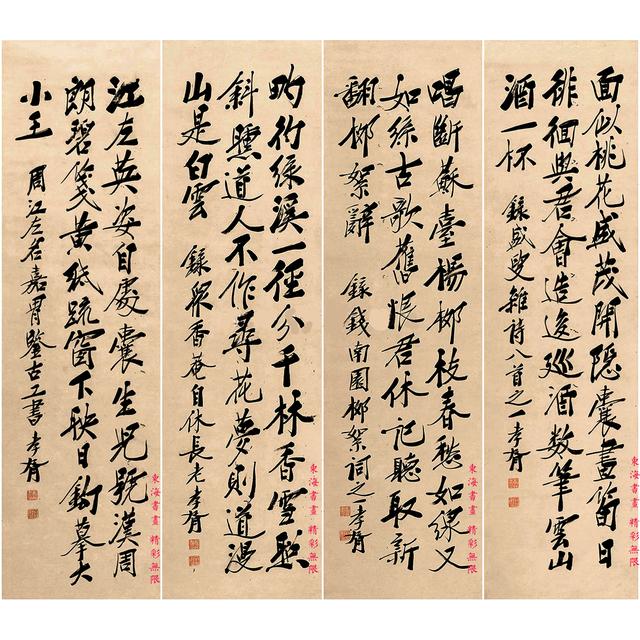 面似桃花盛茂開隐囊畫笥日
徘徊與君會造逡巡酒數筆雲山
酒一杯 錄盛叟雜詩八首之一孝胥
唱斷蘇臺楊柳枝春愁如綫又
如絲古歌舊悵君休記聽取新
翻柳絮辭 錄錢南園柳絮詞之一孝胥
竹緣溪一徑分千林香雪照
斜曛道人不作尋花夢則道漫
山是白雲 錄香菴自休長老孝胥
江左英姿自處囊生兄號漢周
朗碧箋黄紙疏窗下映日鈎摹大
小王 周江左名嘉胄鑒古工書孝胥
東海書畫 精彩無限
東海書畫 精彩無限
東海書畫 精彩無限
東海書畫 精彩無限